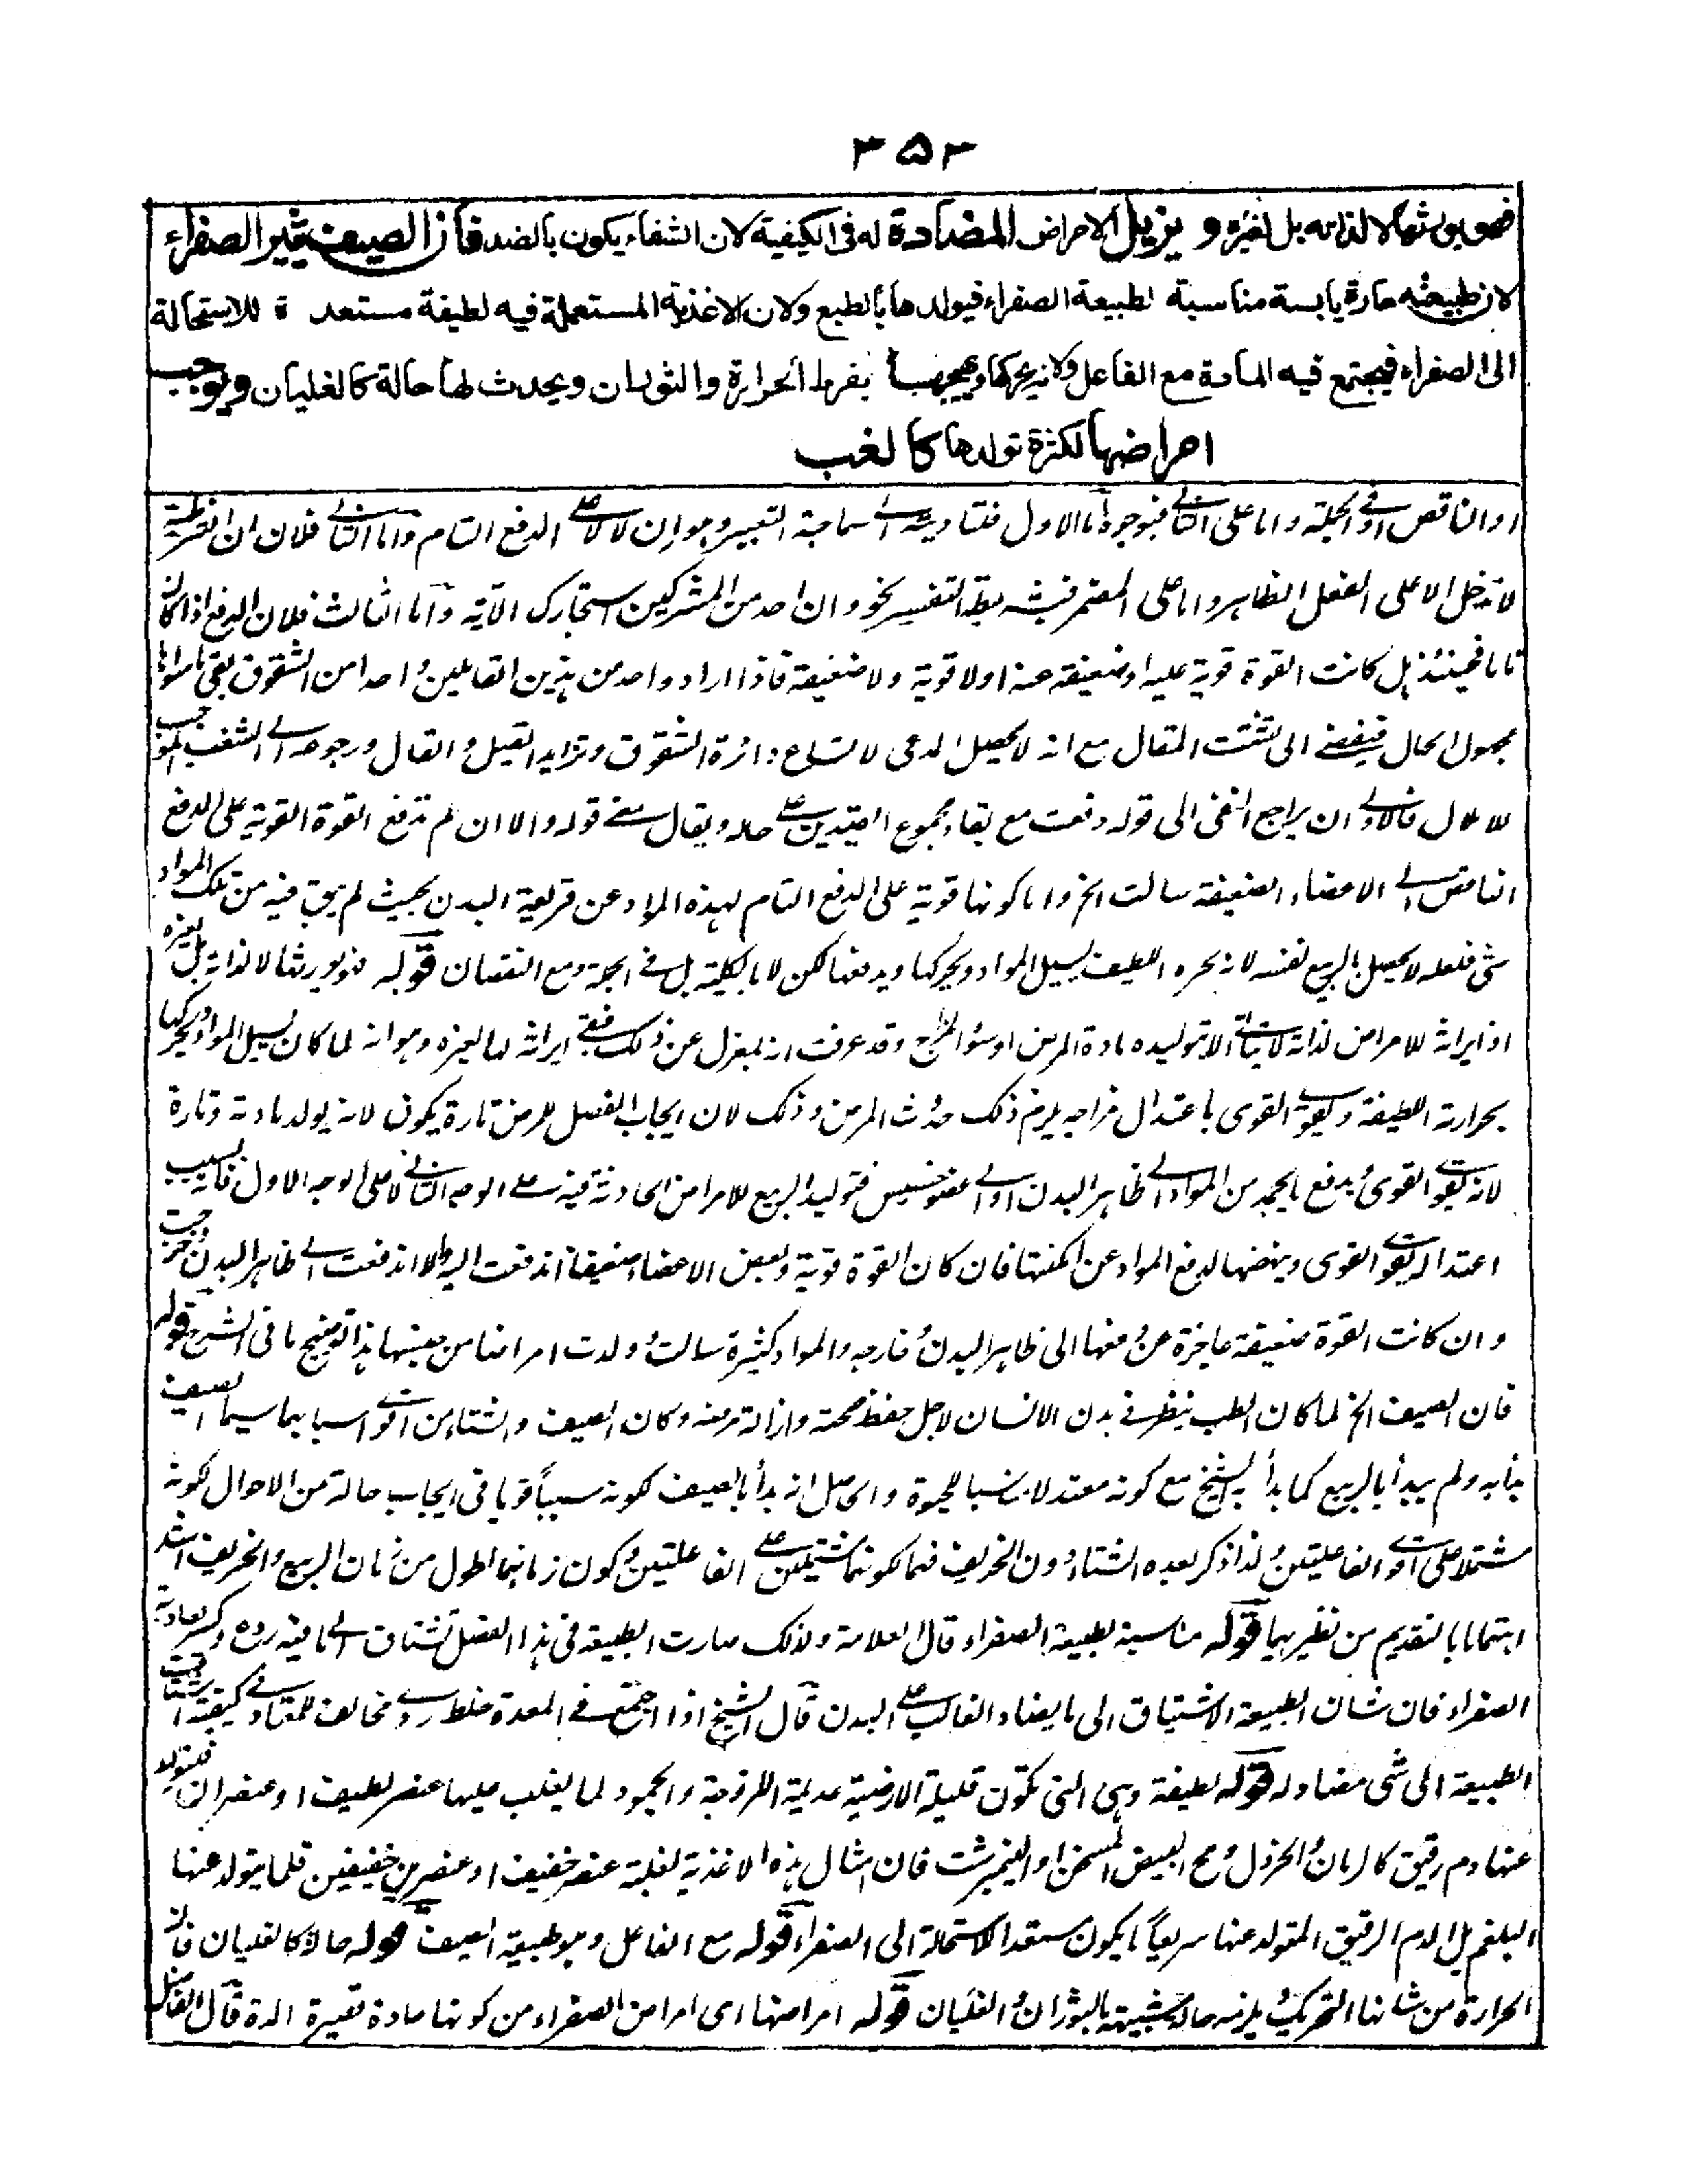 ۳۵۲
فهو يورثها لا لذاته بل لغيره و يزيل الامراض المضادة له فى الكيفية لان الشفاء يكون بالضد فان الصيف يثير الصفراء
لان طبيعته حارة يابسة مناسبة لطبيعة الصفراء فيولدها بالطبع ولان الاغذية المستعملة فيه لطيفة مستعدة للاستحالة
الى الصفراء فيجتمع فيه المادة مع الفاعل ولانه يحركها ويهيجها بفرط الحرارة والثوران ويحدث لها حالة كالغليان ويوجب
امراضها لكثرة تولدها كالغب
او الناقص او فى الجملة واما على الثانى فبوجوه اما الاول فتاديته الى سماجة التعبير وهو ان لا لا على الدفع التام واما الثانى فلان ان الشرطية
لا تدخل الا على الفعل الظاهر واما على المضمر فبشريطة التفسير نحو وان احد من المشركين استجارك الآية وآما الثالث فلان الدفع اذا كان
تاما فحينئذ هل كانت القوة قوية عليه او ضعيفة عنه او لا قوية ولا ضعيفة فاذا اراد واحد من هذين القائلين احدا من الشقوق بقى ما سواها
مجهول الحال فيفضى الى تشتت المقال مع انه لا يحصل المدعى لاتساع دائرة الشقوق وتزايد القيل والقال ورجوعه الى الشغب الموجب
للاملال فالاولى ان يراجع النفى الى قوله دفعت مع بقاء مجموع القيدين على حاله ويقال معنى قوله والا ان لم تدفع القوة القوية على الدفع
الناقص الى الاعضاء الضعيفة سالت الخ واما كونها قوية على الدفع التام لهذه المواد عن قريعة البدن بحيث لم يبق فيه من تلك المواد
شئ فلعله لا يحصل بالربيع نفسه لانه بحره اللطيف يسيل المواد ويحركها ويدفعها لكن لا بالكلية بل فى الجملة ومع النقصان قوله فهو يورثها لا لذاته بل لغيره
اذ ايراثه للامراض لذاته لا يتأتى الا بتوليده مادة المرض او سوء المزاج وقد عرفت انه بمعزل عن ذلك فبقى ايراثه لها لغيره وهو انه لما كان يسيل المواد ويحركها
بحرارته اللطيفة ويقوى القوى باعتدال مزاجه يلزم ذلك حدوث المرض وذلك لان ايجاب الفصل للمرض تارة يكون لانه يولد مادته وتارة
لانه يقوى القوى فيدفع ما يجده من المواد الى ظاهر البدن او الى عضو خسيس فتوليد الربيع للامراض الحادثة فيه على الوجه الثانى لا على الوجه الاول فانه بسبب
اعتداله يقوى القوى وينهضها لدفع المواد عن امكنتها فان كان القوة قوية وبعض الاعضاء ضعيفا اندفعت اليه والا اندفعت الى ظاهر البدن وخرجت
وان كانت القوة ضعيفة عاجزة عن دفعها الى ظاهر البدن وخارجه والمواد كثيرة سالت وولدت امراضا من جنسها هذا توضيح ما فى الشرح قوله
فان الصيف الخ لما كان الطب ينظر فى بدن الانسان لاجل حفظ صحته وازالة مرضه وكان الصيف والشتاء من اقوى اسبابهما سيما الصيف
بدأ به ولم يبدأ بالربيع كما بدأ به الشيخ مع كونه معتدلا مناسبا للحيوة والحاصل انه بدأ بالصيف لكونه سببًا قويا فى ايجاب حالة من الاحوال لكونه
مشتملا على اقوى الفاعليتين ولذا ذكر بعده الشتاء دون الخريف فهما لكونهما مشتملين على الفاعلتين وكون زمانهما اطول من زمان الربيع والخريف اشد
اهتماما بالتقديم من نظيريهما قوله مناسبة لطبيعة الصفراء قال العلامة ولذلك صارت الطبيعة فى هذا الفصل تشتاق الى ما فيه ردع وكسر لعادية
الصفراء فان شان الطبيعة الاشتياق الى ما يضاد الغالب على البدن قال الشيخ اذا اجتمع فى المعدة خلط ردى مخالف للمعتاد فى كيفيته اشتاقت
الطبيعة الى شئ مضاد له قوله لطيفة وهى التى تكون قليلة الارضية عديمة اللزوجة والجمود لما يغلب عليها عنصر لطيف او عنصران فيتولد
عنها دم رقيق كالرمان والخردل ومح البيض المسخن او النيمبرشت فان امثال هذه الاغذية لغلبة عنصر خفيف او عنصرين خفيفين قلما يتولد عنها
البلغم بل الدم الرقيق المتولد عنها سريعًا ما يكون مستعد الاستحالة الى الصفراء قوله مع الفاعل وهو طبيعة الصيف قوله حالة كالغليان فان
الحرارة من شانها التحريك ويلزمه حالة شبيهة بالثوران والغليان قوله امراضها اى امراض الصفراء من كونها حادة قصيرة المدة قال الفاضل